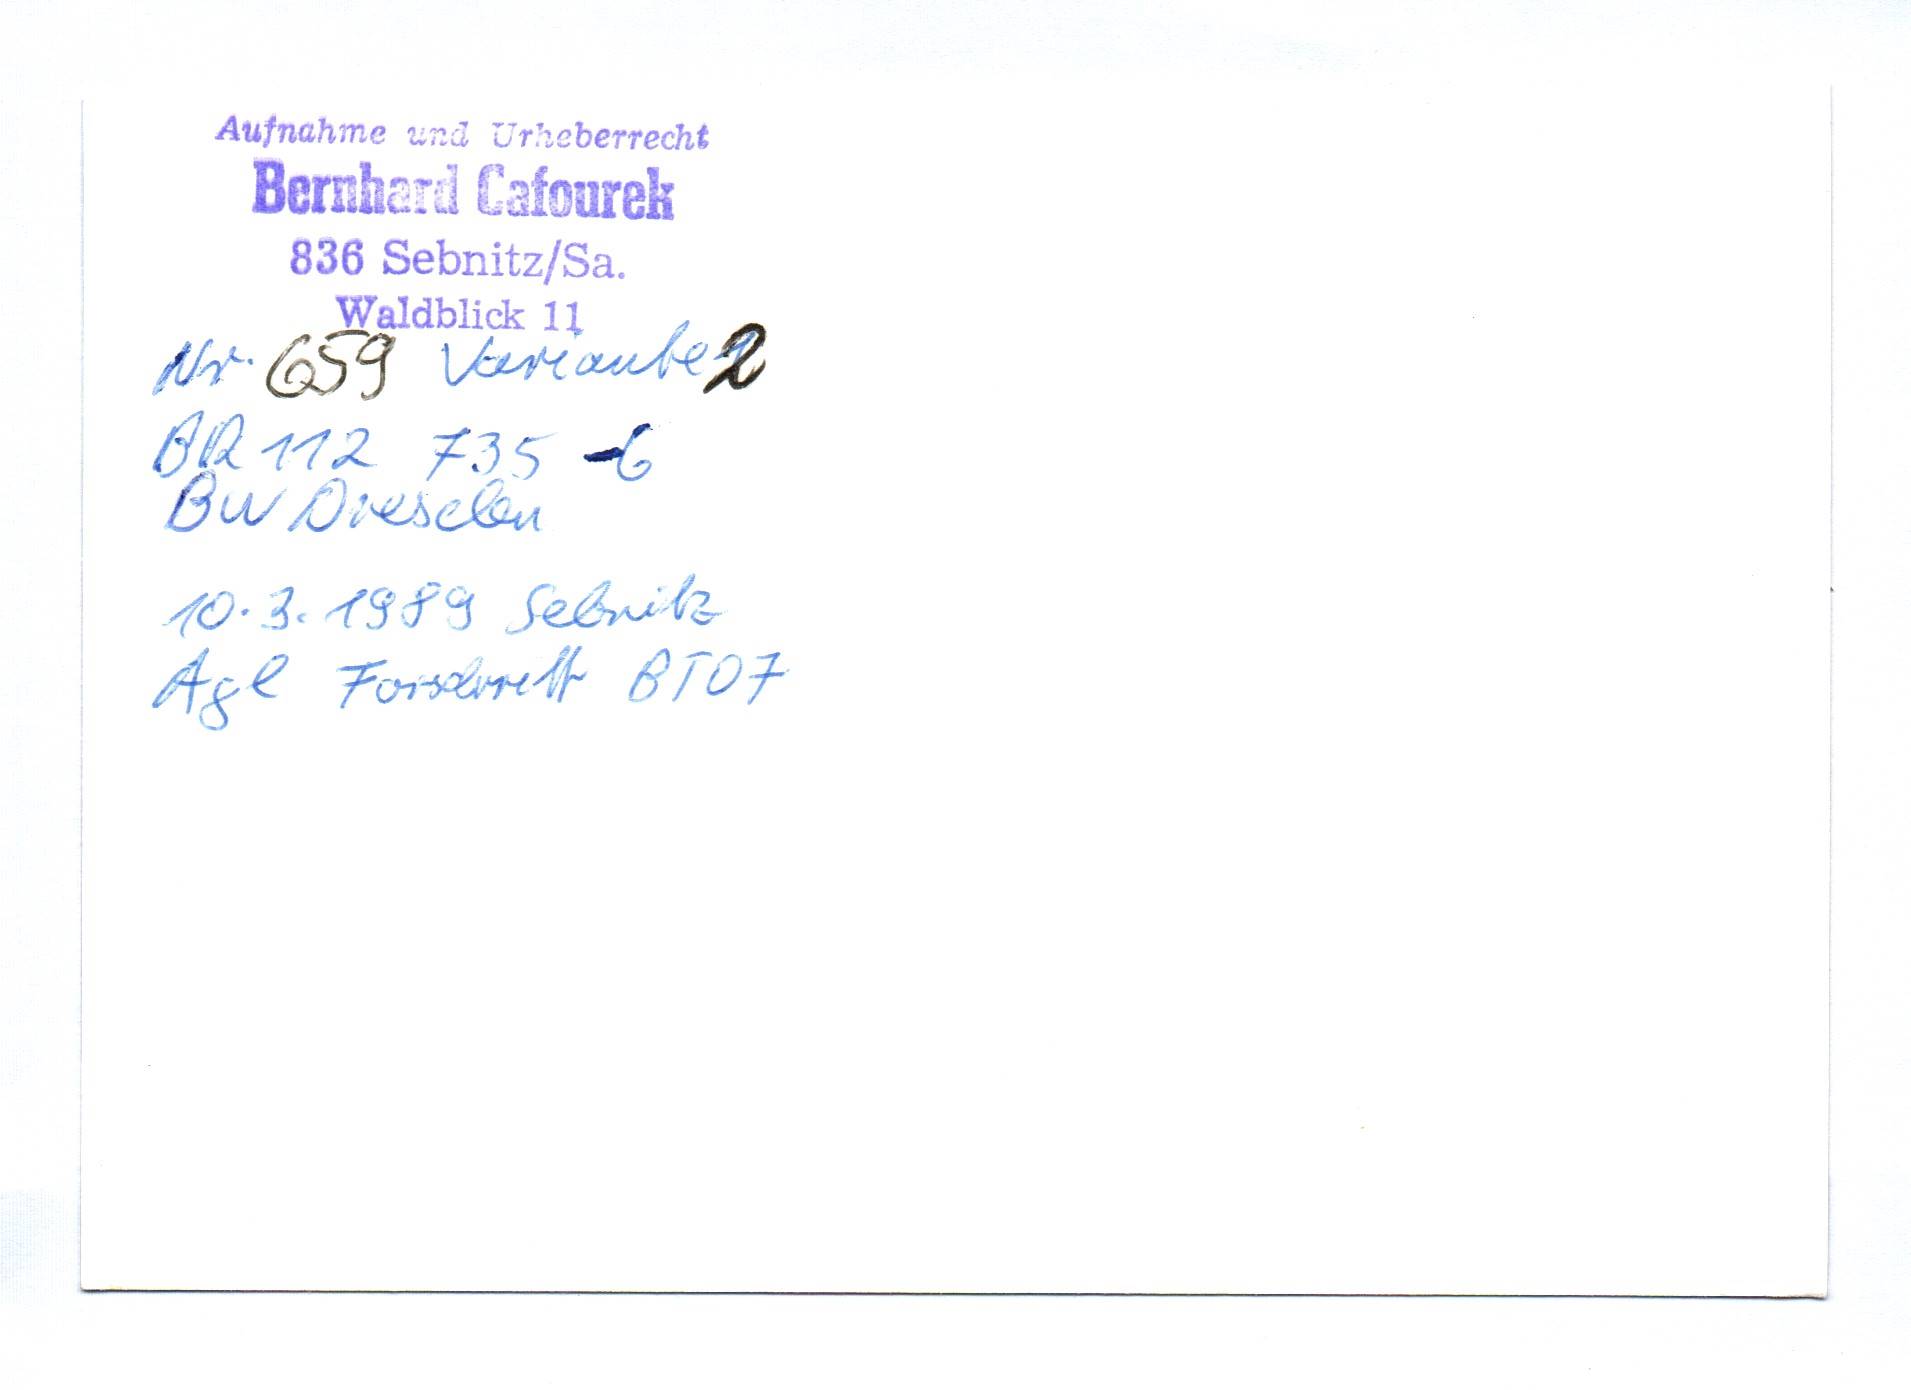 Aufnahme und Urheberrecht
Bernhard Cafourek
836 Sebnitz/Sa.
Waldblick 11
Nr. 659 Variante 2
BR 112 735 -6
BW Dresden
10.3.1989 Sebnitz
Agl BTO7